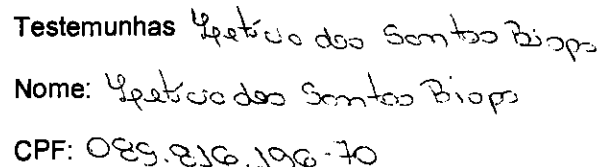 Testemunhas Letícia dos Santos Bispo
Nome: Letícia dos Santos Bispo
CPF: 089.816.196-70